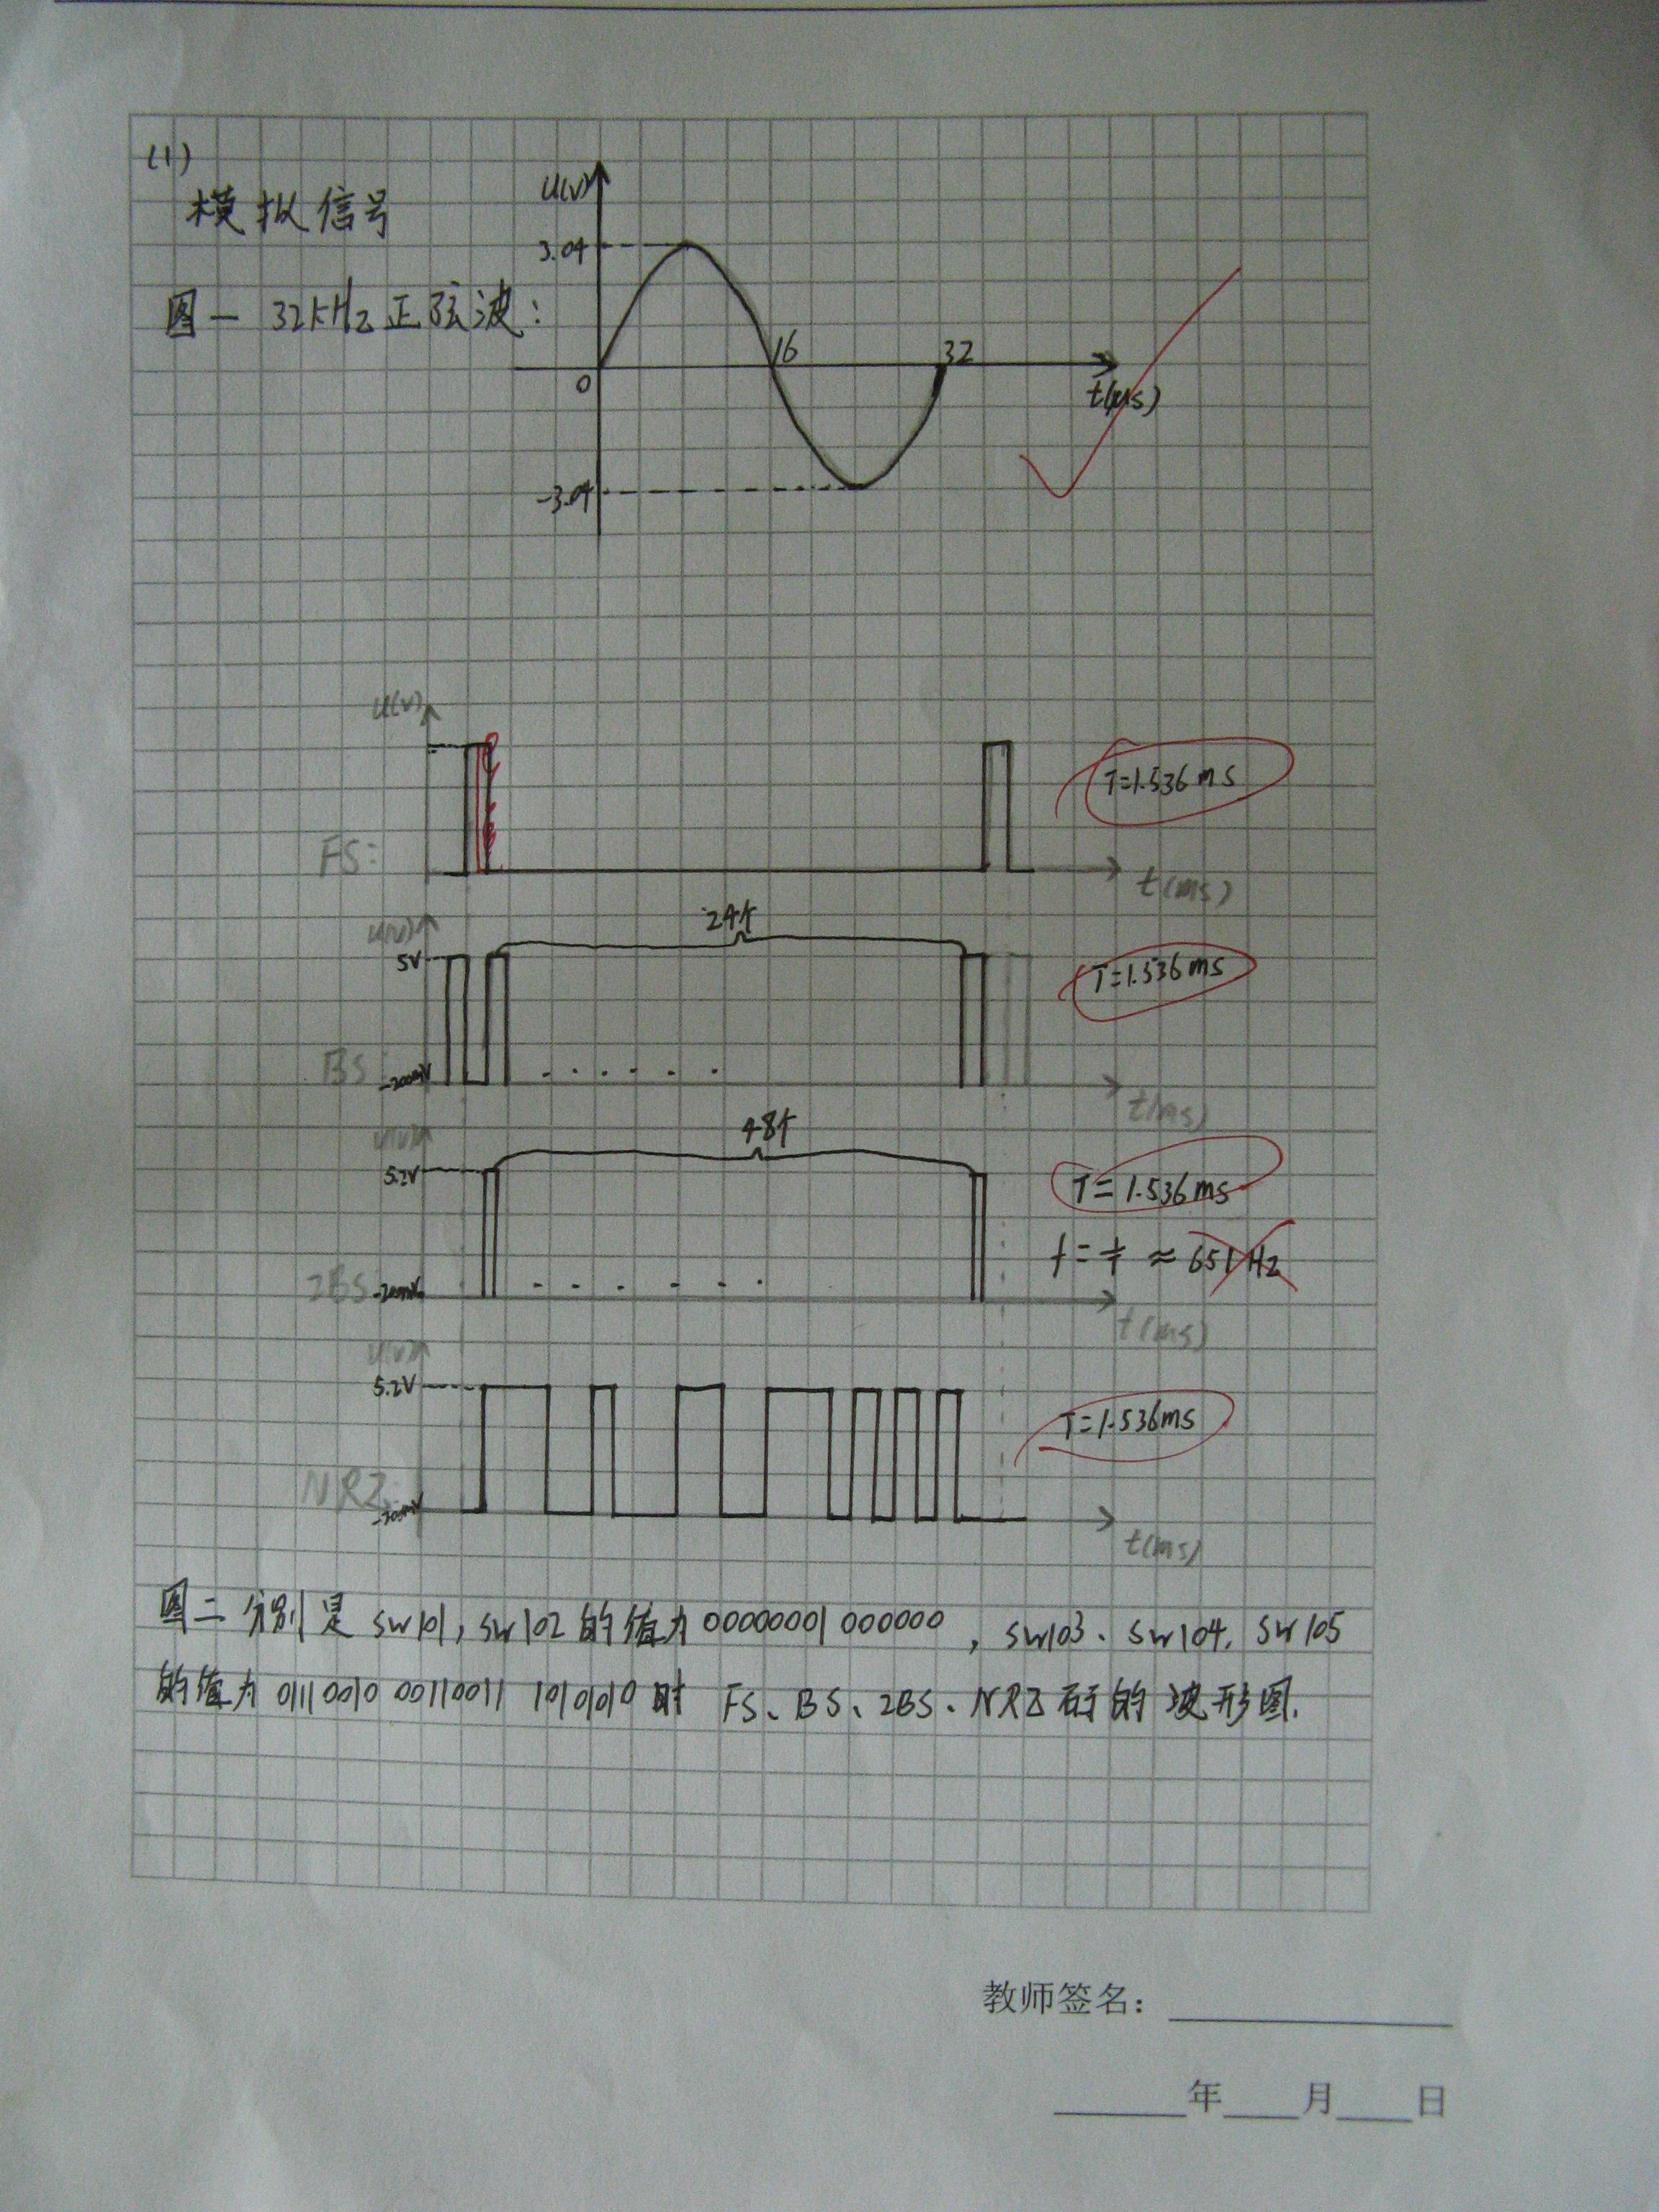 (1)
模拟信号
图一 32kHz正弦波：
U(V)
3.04
0
16
32
t(μs)
-3.04
U(V)
FS:
T=1.536ms
t(ms)
24个
U(V)
5V
BS
-200mV
T=1.536ms
t(ms)
48个
U(V)
5.2V
2BS
-200mV
T=1.536ms
f=1/T≈651Hz
t(ms)
U(V)
5.2V
NRZ
-200mV
T=1.536ms
t(ms)
图二 分别是SW101,SW102的值为00000001 000000，SW103、SW104、SW105
的值为01110010 00110011 10101010时 FS、BS、2BS、NRZ码的波形图.
教师签名：
年 月 日